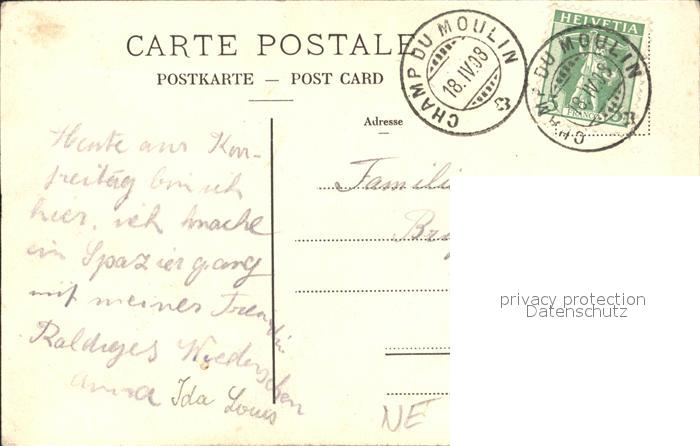 CARTE POSTALE
POSTKARTE — POST CARD
CHAMP DU MOULIN
18.IV.08
HELVETIA
CHAMP DU MOULIN
FRANCO
Adresse
Heute am Karr-
freitag bin ich
hier. ich mache
ein Spaziergang
mit meiner Freundin
Baldiges Wiedersehen
Anna Ida Louis
Famili
NE
privacy protection
Datenschutz